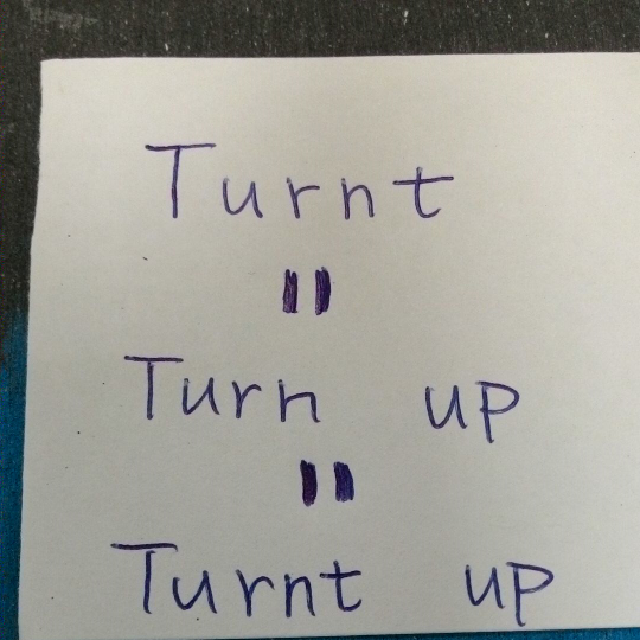 Turnt
=
Turn up
=
Turnt up